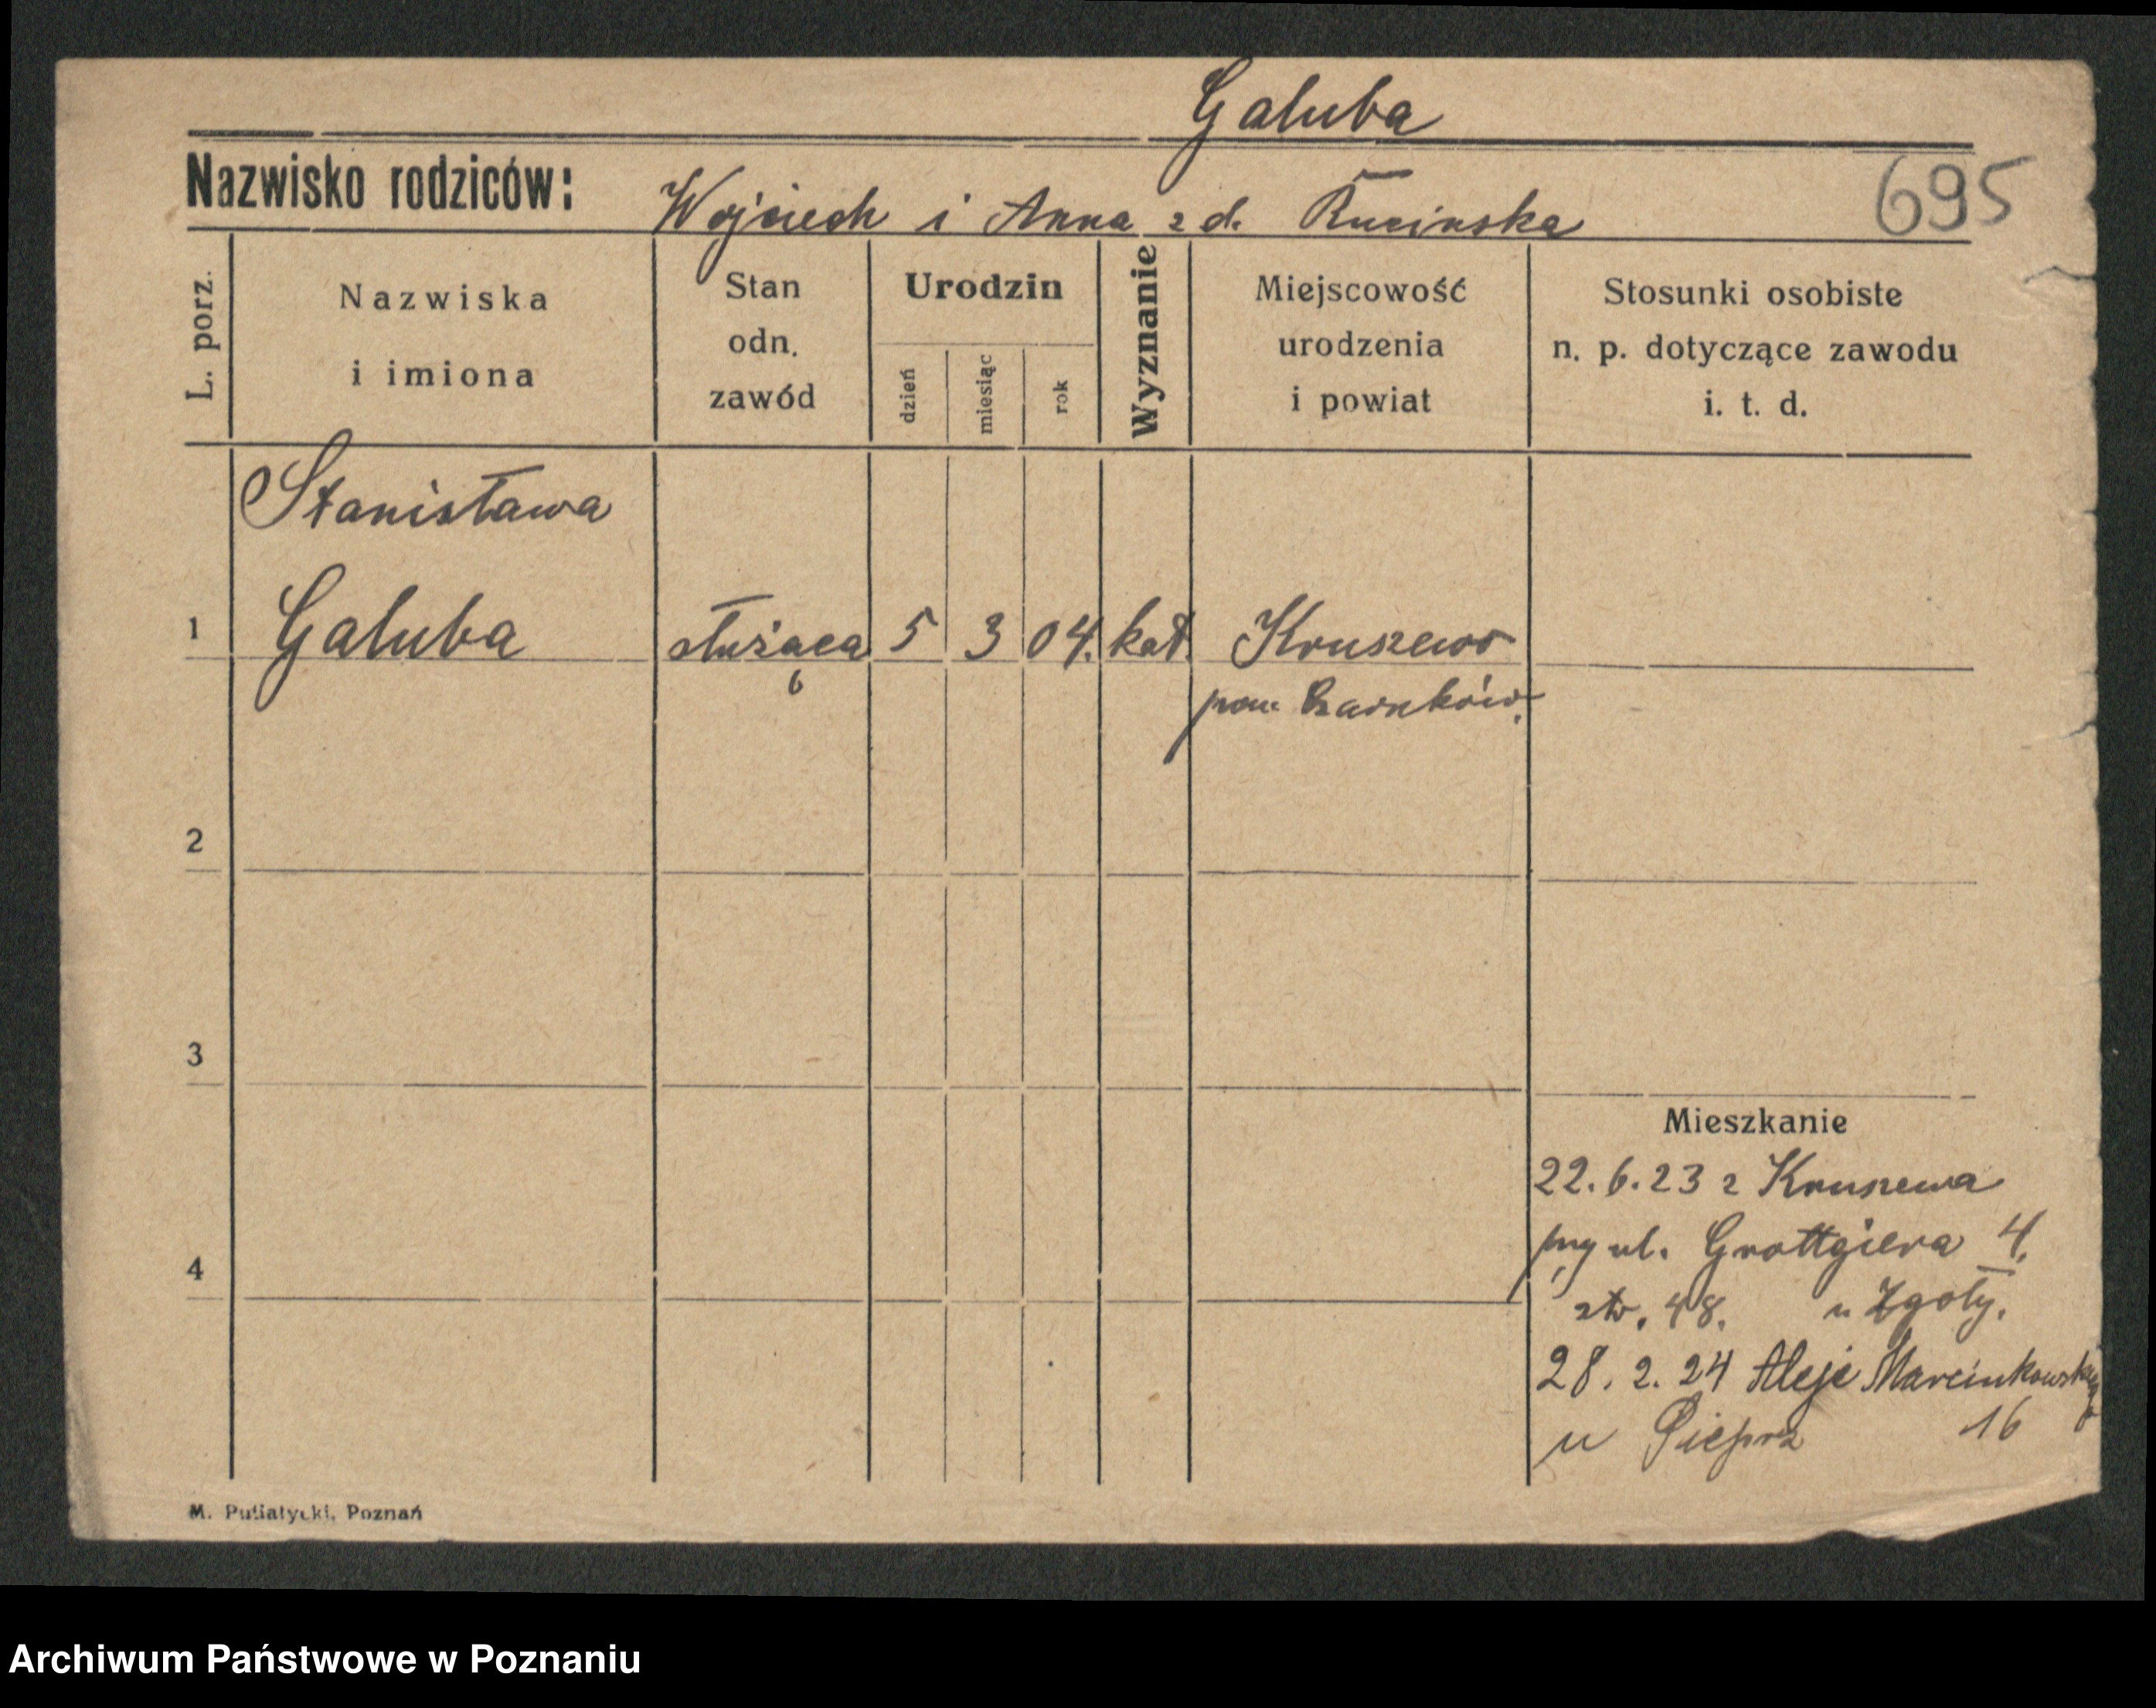 Galuba
Nazwisko rodziców: Wojciech i Anna z d. 695
L. porz.
Nazwiska i imiona
Stan odn. zawód
Urodzin
dzień
miesiąc
rok
Wyznanie
Miejscowość urodzenia i powiat
Stosunki osobiste n. p. dotyczące zawodu i. t. d.
Stanisława
1 Galuba służąca 5 3 04. kat. Kruszewo
pow. Czarnków.
2
3
Mieszkanie
22.6.23 z Kruszewa
4
przy ul. Grottgiera 4.
str. 48. u Zgoły.
28.2.24 Aleje Marcinkowskiego
u 16
M. Putiatycki, Poznań
Archiwum Państwowe w Poznaniu